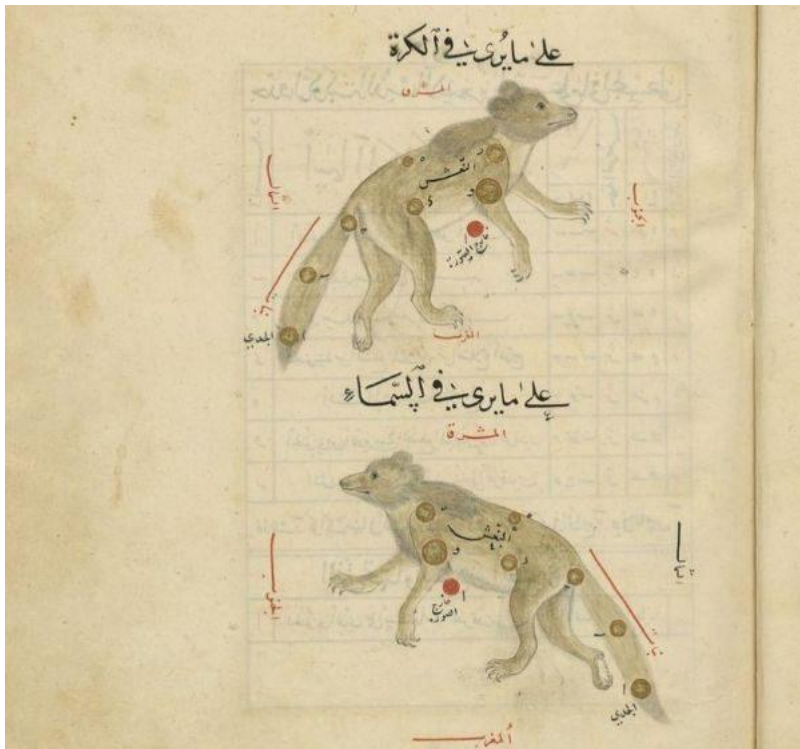 على ما يُرى في الكرة
المشرق
الشمال
النعش
الجنوب
خارج الصورة
بنات
الجدي
المغرب
على ما يرى في السَّمَاء
المشرق
النعش
الشمال
الجنوب
خارج
الصورة
بنات
الجدي
المغرب